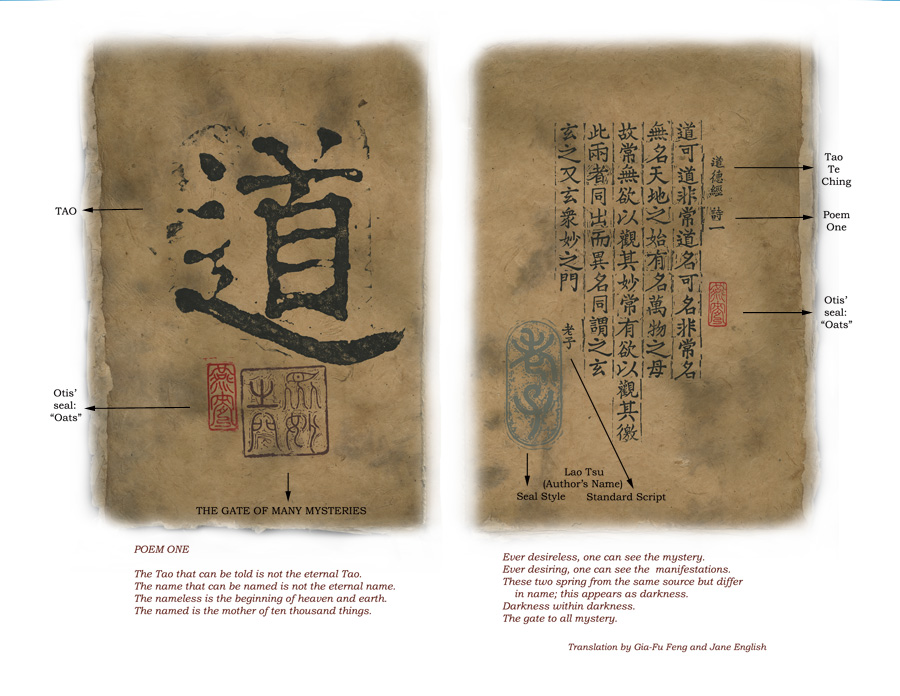 道
TAO
燕麥
Otis’
seal:
“Oats”
眾妙
之門
THE GATE OF MANY MYSTERIES
道德經 詩一
道可道非常道名可名非常名
無名天地之始有名萬物之母
故常無欲以觀其妙常有欲以觀其徼
此兩者同出而異名同謂之玄
玄之又玄衆妙之門
老子
老子
燕麥
Tao
Te
Ching
Poem
One
Otis’
seal:
“Oats”
Lao Tsu
(Author’s Name)
Seal Style
Standard Script
POEM ONE
The Tao that can be told is not the eternal Tao.
The name that can be named is not the eternal name.
The nameless is the beginning of heaven and earth.
The named is the mother of ten thousand things.
Ever desireless, one can see the mystery.
Ever desiring, one can see the manifestations.
These two spring from the same source but differ
in name; this appears as darkness.
Darkness within darkness.
The gate to all mystery.
Translation by Gia-Fu Feng and Jane English